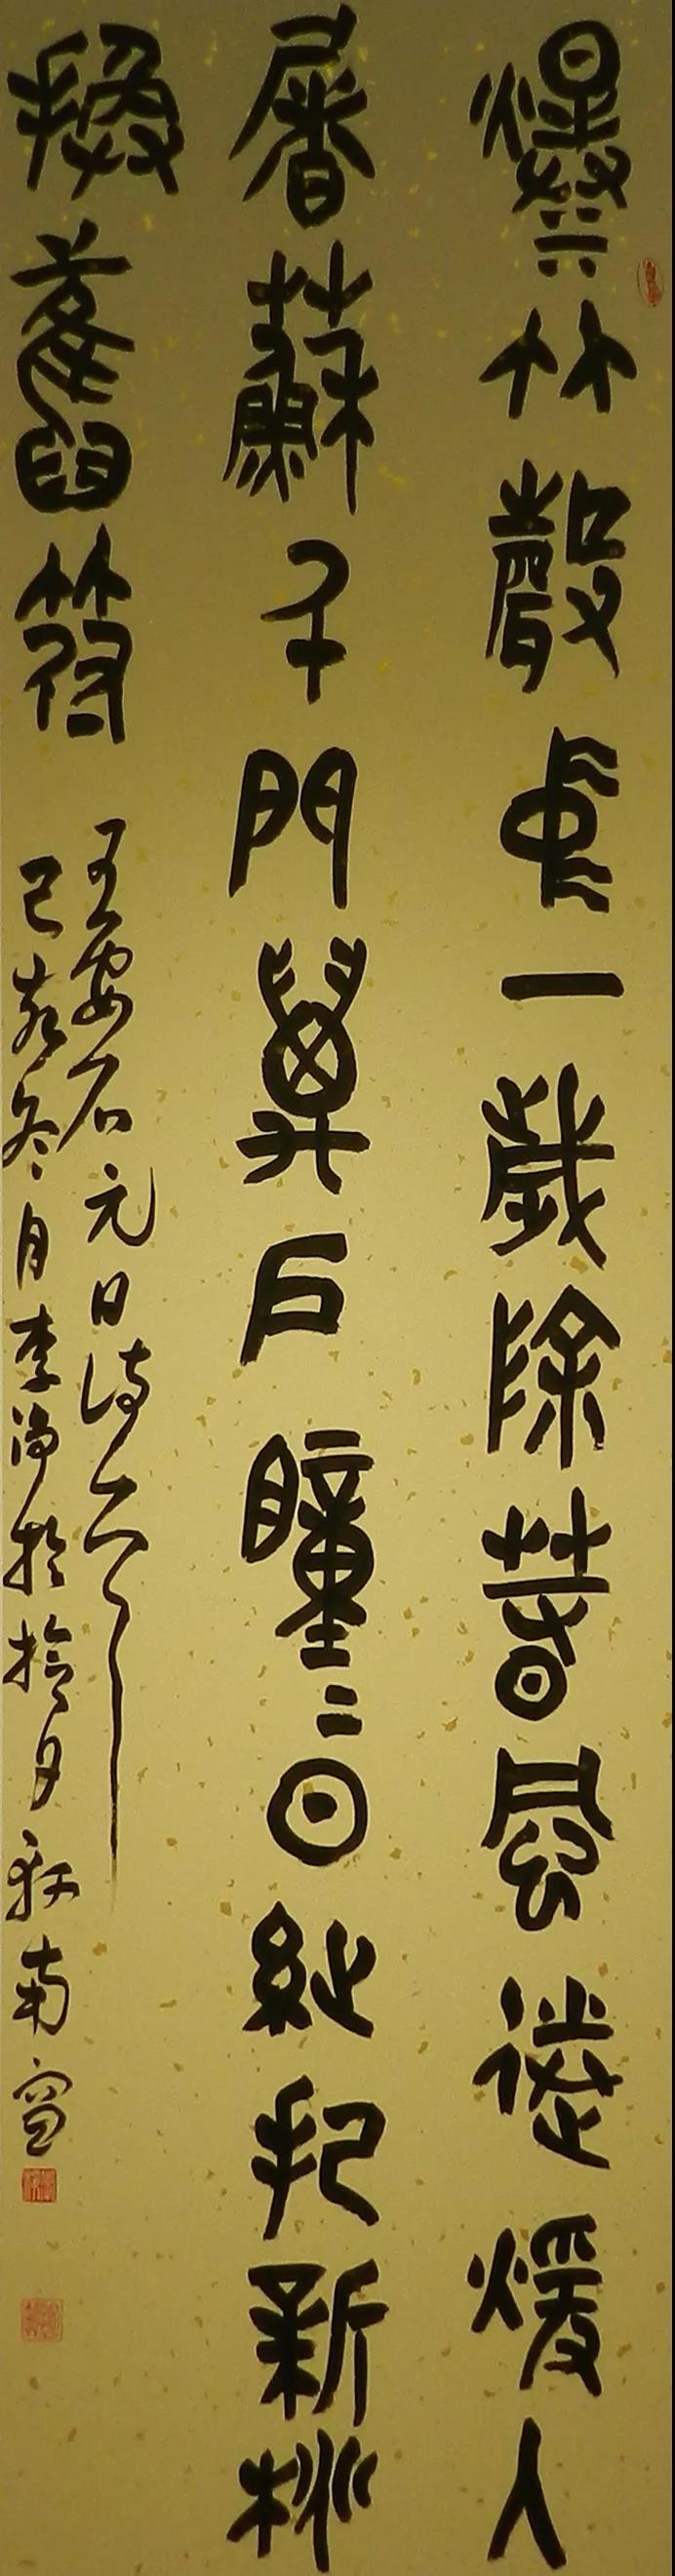 爆竹聲中一歲除春風送暖入
屠蘇千門萬戶瞳〻日總把新桃
換舊符
王安石元日詩
己亥冬月李於拾月軒南窗